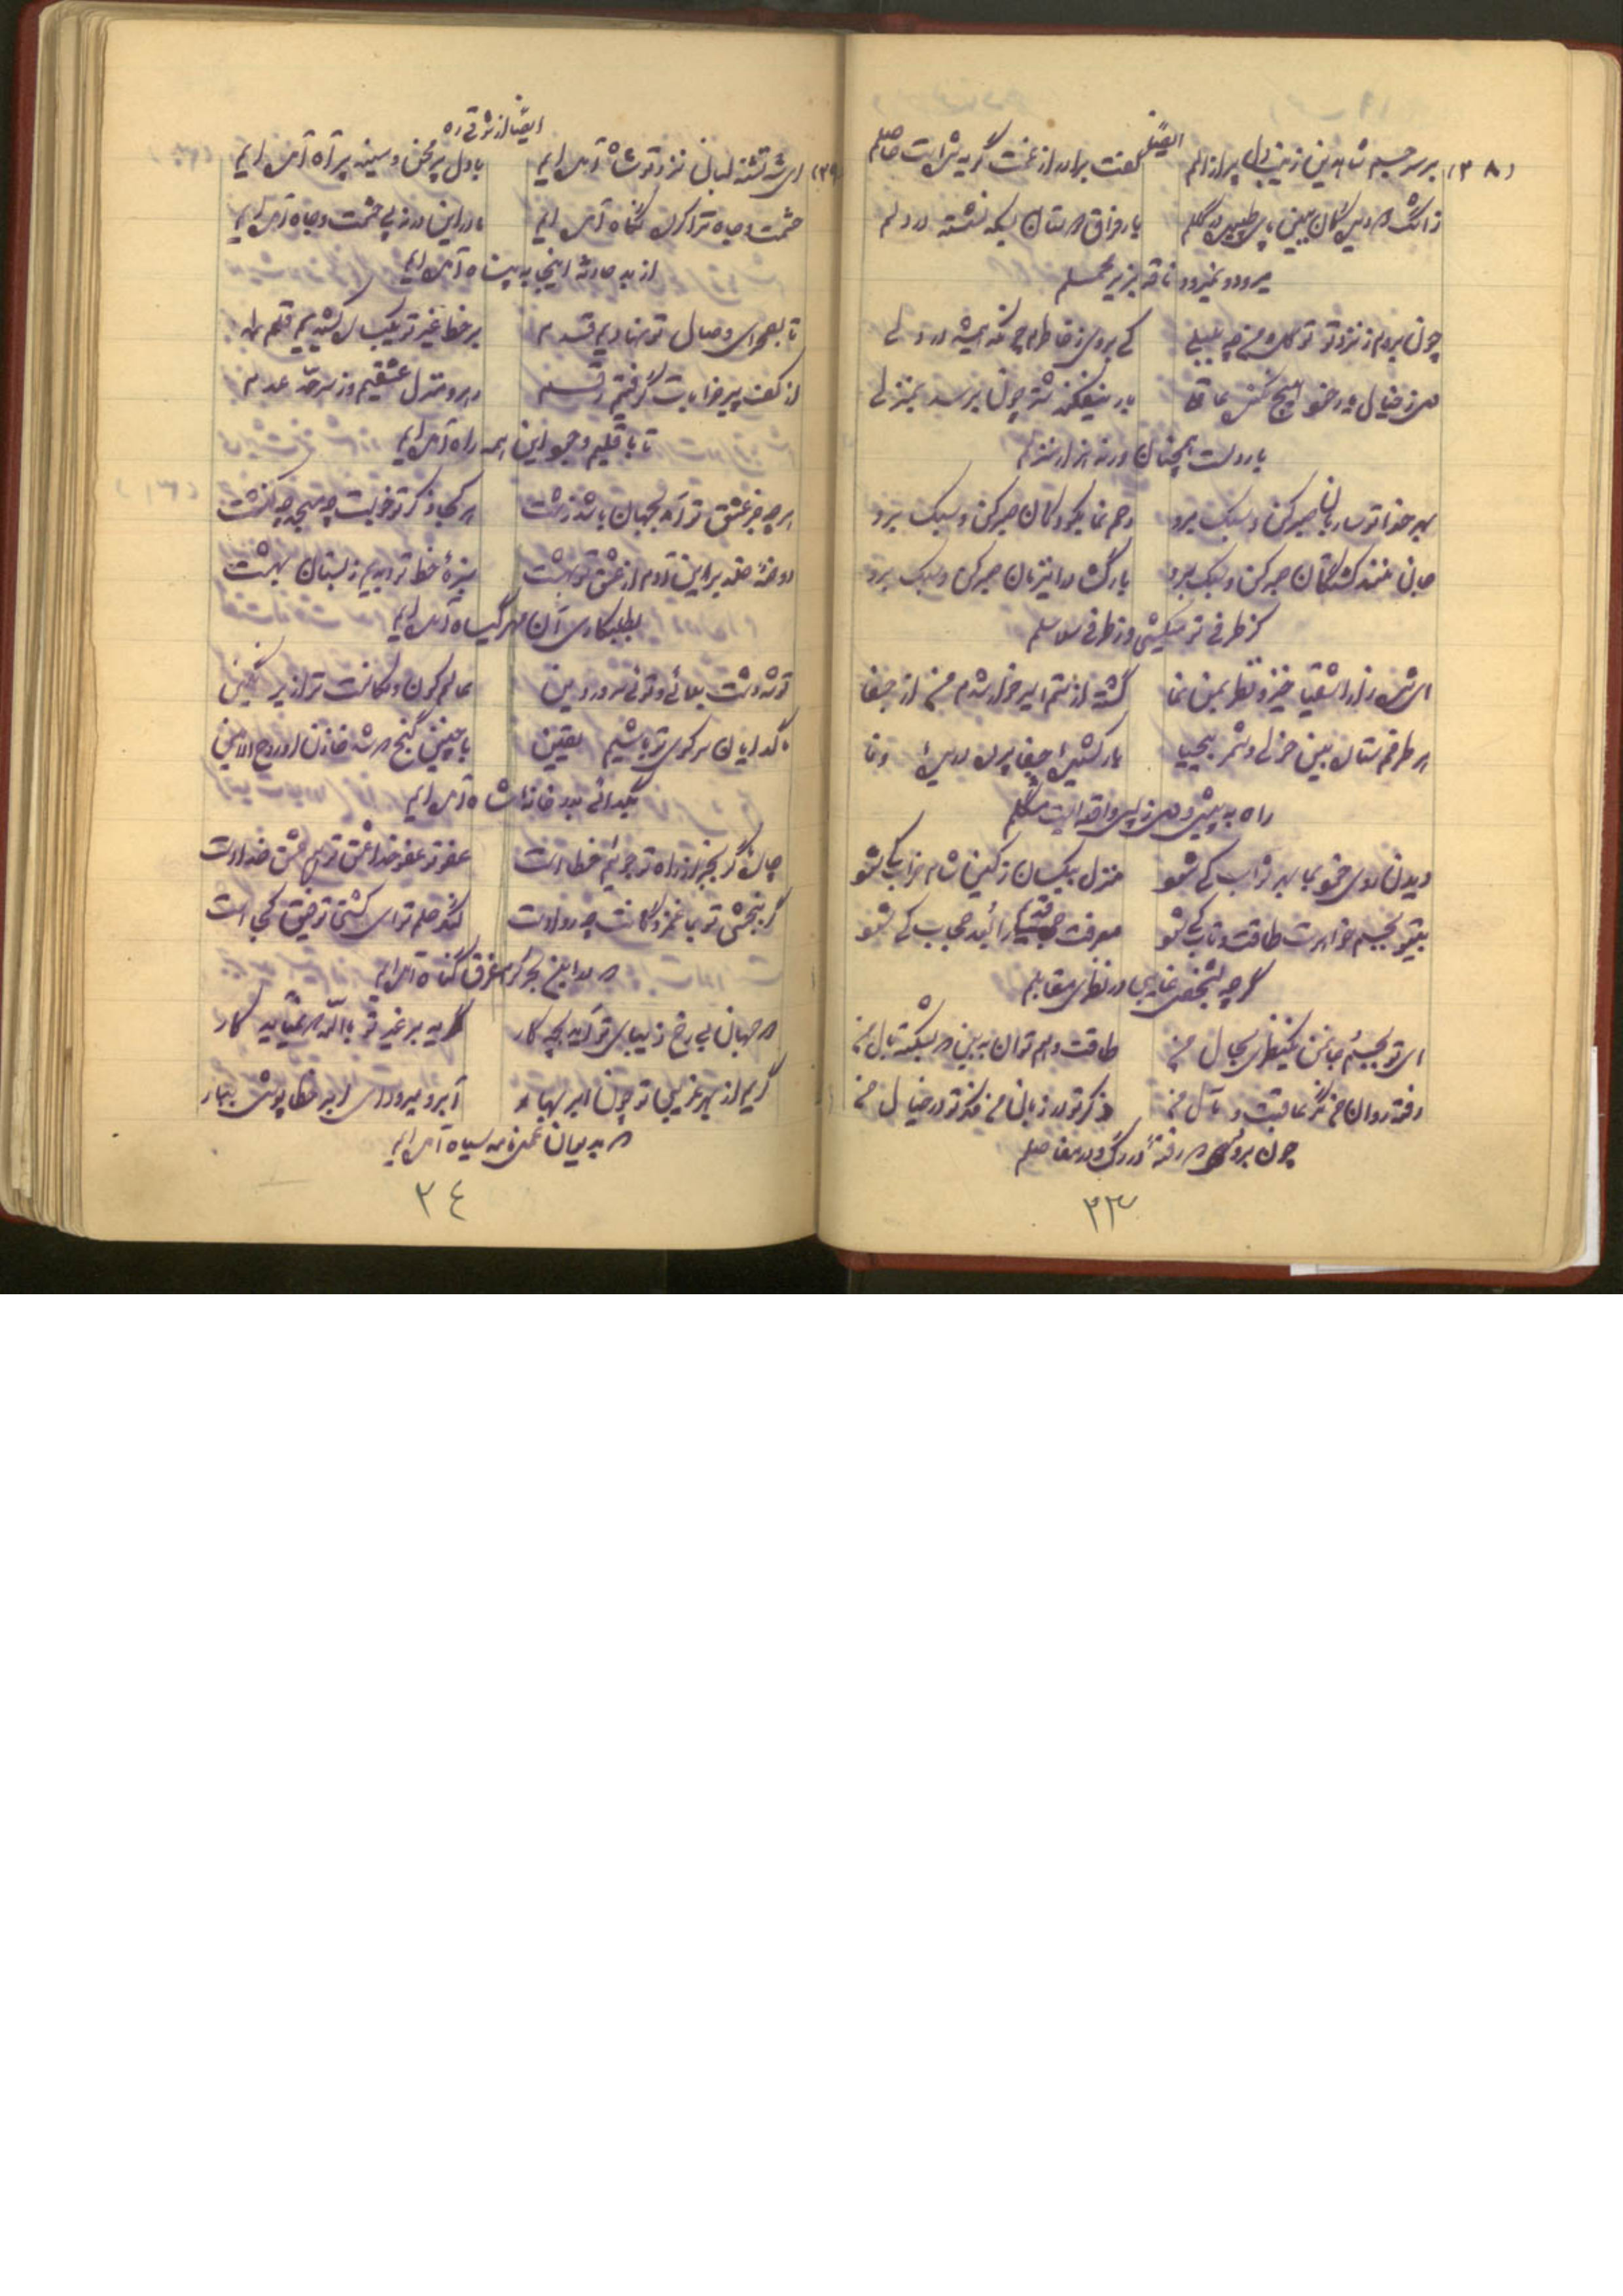 ایضاً
(۳۸) بر سر جسم شاه دین زینب دل پر از الم گفت برادر از غمت گریه شده است حاصلم
ز اشک دیده کان ببین پای طپیدن گلم بار فراق دوستان بسکه نشسته در دلم
میرود و نمیرود ناقه بزیر محملم
چون بروم ز نزد تو تو گل و من چه بلبلی کی بروی ز خاطرم چونکه همیشه در دلی
ز خیال یار خود هیچ نمیکنی بار بیفکند شتر چون برسد بمنزلی
بار دلست همچنان ورنه هزار منزلم
بهر خدا تو ساربان صبر کن و سبک برو رحم نما بکودکان صبر کن و سبک برو
صبر کن و سبک برو بار گش صبر کن و سبک برو
کز طرفی تو میکشی وز طرفی سلاسلم
ای شه را اشقیا خیز و نظر بمن نما کشته از ستم اسیر خوار شدم من از جفا
هر طرفم ستان ببین خولی و شمر بیحیا بار کشیده جفا پرده دریده وفا
راه به پیش و دل ز پس واقعه ایست مشکلم
دیدن روی خود نما بهر ثواب کی شود منزل بیکسان ز کین شام خراب کی شود
بیتو بجسم خواهرت طاقت و تاب کی شود معرفت قدیم را بعد حجاب کی شود
گرچه بشخص غایبی در نظری مقابلم
ای تو بجسم جان من یکنظری بحال من طاقت و هم توان ببین در شکسته بال من
رفته روان من نگر عاقبت و مآل من ذکر تو در زبان من فکر تو در خیال من
چون برود که رفته در رگ و در مفاصلم
۳۳
ایضاً از شوقی ره
(۳۹) ای شه تشنه لبان نزد تو شاه آمده ایم با دل پر محن و سینه پر آه آمده ایم
حشمت و جاه ترا کرده نگاه آمده ایم ما در این در نه پی حشمت و جاه آمده ایم
از بد حادثه اینجا به پناه آمده ایم
تا بصحرای وصال تو نهادیم قدم بر خط غیر تو یکباره کشیدیم قلم
از کف پیر خرابات گرفتیم رقم رهرو منزل عشقیم و ز سرحد عدم
تا باقلیم وجود این همه راه آمده ایم
هر چه جز عشق تو آمد بجهان باشد زشت هر کجا ذکر تو خوبست چه مسجد چه کنشت
روضه خلد برین آدم از عشق تو بهشت سبزه خط تو دیدیم ز بستان بهشت
بطلبکاری آن مهر گیاه آمده ایم
تو شه دشت بلائی و توئی سرور دین عالم کون و مکانت ترا زیر نگین
ما گدایان سر کوی تو باشیم یقین با چنین گنج که شد خازن او روح الامین
بگدائی بدر خانه شاه آمده ایم
عفو تو عفو خدا عشق تو هم عشق خداوست
گر ببخشی تو بما غمزدگانت چه رواست لنگر حلم تو ای کشتی توفیق کجا است
که در این بحر کرم غرق گناه آمده ایم
در جهان بی رخ زیبای تو آید بچه کار گریه بر غیر تو بالله نمیآید کار
گریم از بهر غریبی تو چون ابر بهار آبرو میرود ای ابر خطا پوش ببار
که بدیوان عمل نامه سیاه آمده ایم
۳٤